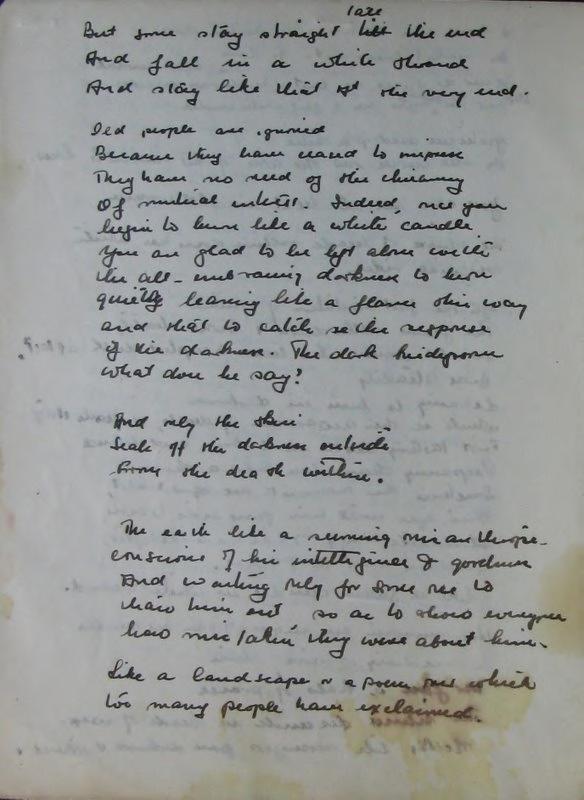 lare
But some stay straight till the end
And fall in a white strand
And stay like that at the very end.
Old people are ignored
Because they have ceased to impress
They have no need of the chicanery
Of mutual interest. Indeed, once you
begin to burn like a white candle
You are glad to be left alone with
the all-embracing darkness to burn
quietly leaning like a flame this way
and that to catch as the response
of the darkness. The dark bridegroom
what does he say?
And only the skin
Seals off the darkness outside
From the death within.
The earth like a cunning misanthrope
conscious of his intelligence & goodness
And waiting only for some one to
draw him out so as to show everyone
how mistaken they were about him.
Like a landscape or a poem over which
too many people have exclaimed.